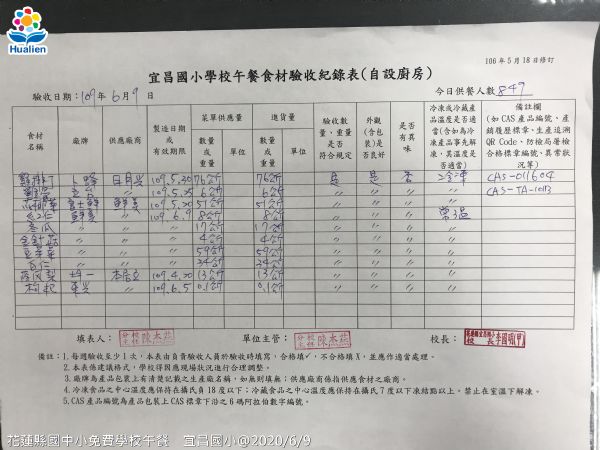 Hualien
106年5月18日修訂
宜昌國小學校午餐食材驗收紀錄表(自設廚房)
驗收日期:109年6月9日
今日供餐人數849
食材名稱 廠牌 供應廠商 製造日期或有效期限 菜單供應量 進貨量 驗收數量,重量是否符合規定 外觀(含包裝)是否良好 是否有異味 冷凍或冷藏產品溫度是否適當(含如為冷凍產品事先解凍,其溫度是否適當) 備註欄(如CAS產品編號、產銷履歷標章、生產追溯QR Code、防檢局屠檢合格標章編號、異常狀況等)
數量或重量 單位 數量或重量 單位
109.5.20 76公斤 76公斤 是 是 否 冷凍 CAS-011604
6公斤 6公斤 〃 〃 〃 〃
109.5.25 51公斤 51公斤 〃 〃 〃 〃
109.6.9 8公斤 8公斤 〃 〃 〃 常溫
冬瓜 〃 〃 〃 17公斤 17公斤 〃 〃 〃 〃
金針菇 〃 〃 〃 4公斤 4公斤 〃 〃 〃 〃
〃 〃 〃 59公斤 59公斤 〃 〃 〃 〃
〃 〃 〃 34公斤 34公斤 〃 〃 〃 〃
109.4.20 13公斤 13公斤 〃 〃 〃 〃
枸杞 〃 109.6.5 0.1公斤 0.1公斤 〃 〃 〃 〃
填表人: 單位主管: 校長:
備註:1.每週驗收至少1次,本表由自責驗收人員於驗收時填寫,合格填ˇ,不合格填X,並應作適當處理。
2.本表係建議格式,學校得因應現場狀況進行合理調整。
3.廠牌為產品包裝上有清楚記載之生產廠名稱,如無則填無;供應廠商係指供應食材之廠商。
4.冷凍食品之中心溫度應保持在攝氏負18度以下;冷藏食品之中心溫度應保持在攝氏7度以下凍結點以上。禁止在室溫下解凍。
5.CAS產品編號為產品包裝上CAS標章下沿之6碼阿拉伯數字編號。
花蓮縣國中小免費學校午餐 宜昌國小@2020/6/9